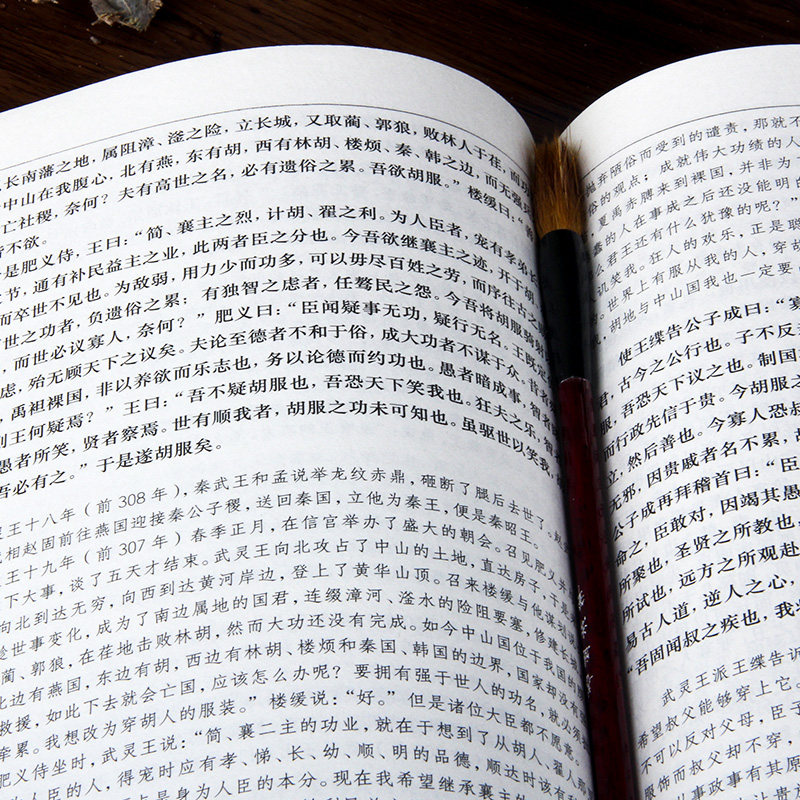 长南藩之地，属阻漳、滏之险，立长城，又取蔺、郭狼，败林人于荏，而功
中山在我腹心，北有燕，东有胡，西有林胡、楼烦、秦、韩之边，而无强
亡社稷，奈何？夫有高世之名，必有遗俗之累。吾欲胡服。”楼缓曰：“善
不欲。
是肥义侍，王曰：“简、襄主之烈，计胡、翟之利。为人臣者，宠有孝弟长
节，通有补民益主之业，此两者臣之分也。今吾欲继襄主之迹，开于胡
而卒世不见也。为敌弱，用力少而功多，可以毋尽百姓之劳，而序往古之
世之功者，负遗俗之累；有独智之虑者，任骜民之怨。今吾将胡服骑射
，而世必议寡人，奈何？”肥义曰：“臣闻疑事无功，疑行无名。王既定
虑，殆无顾天下之议矣。夫论至德者不和于俗，成大功者不谋于众。昔者
，禹袒裸国，非以养欲而乐志也，务以论德而约功也。愚者暗成事，智者
则王何疑焉？”王曰：“吾不疑胡服也，吾恐天下笑我也。狂夫之乐，智
愚者所笑，贤者察焉。世有顺我者，胡服之功未可知也。虽驱世以笑我，
吾必有之。”于是遂胡服矣。
王十八年（前 308 年），秦武王和孟说举龙纹赤鼎，砸断了腿后去世了。
相赵固前往燕国迎接秦公子稷，送回秦国，立他为秦王，便是秦昭王。
王十九年（前 307 年）春季正月，在信官举办了盛大的朝会。召见肥义并
下大事，谈了五天才结束。武灵王向北攻占了中山的土地，直达房子，于是
向北到达无穷，向西到达黄河岸边，登上了黄华山顶。召来楼缓与他谋划
世事变化，成为了南边属地的国君，连缀漳河、滏水的险阻要塞，修建长
蔺、郭狼，在荏地击败林胡，然而大功还没有完成。如今中山国位于我国的
北边有燕国，东边有胡，西边有林胡、楼烦和秦国、韩国的边界，国家却没有
救援，如此下去就会亡国，应该怎么办呢？要拥有强于世人的功名，就必须
牵累。我想改为穿胡人的服装。”楼缓说：“好。”但是诸位大臣都不愿意。
肥义侍坐时，武灵王说：“简、襄二主的功业，就在于想到了从胡、翟人那
为人臣的人，得宠时应有孝、悌、长、幼、顺、明的品德，顺达时该有
是身为人臣的本分。现在我希望继承襄主的
抛弃陋俗而受到的谴责，那就不
俗的观点；成就伟大功绩的人
禹赤膊来到裸国，并非为
的人在事成之后还没能明
么君王还有什么犹豫的呢？”
讥笑我。狂人的欢乐，正是聪
世界上有服从我的人，穿胡
，胡地与中山国我也一定要
使王緤告公子成曰：“寡
君，古今之公行也。子不反
，吾恐天下议之也。制国
而行政先信于贵。今胡服之
立，然后善也。今寡人恐叔
无邪，因贵戚者名不累，故
公子成再拜稽首曰：“臣
命之，臣敢对，因竭其愚
所聚也，圣贤之所教也
所试也，远方之所观赴
易古人道，逆人之心，
“吾固闻叔之疾也，我
武灵王派王緤告诉
希望叔父能够穿上它。
不可以反对父母，臣子
服饰而叔父却不穿，
从事政事有其原